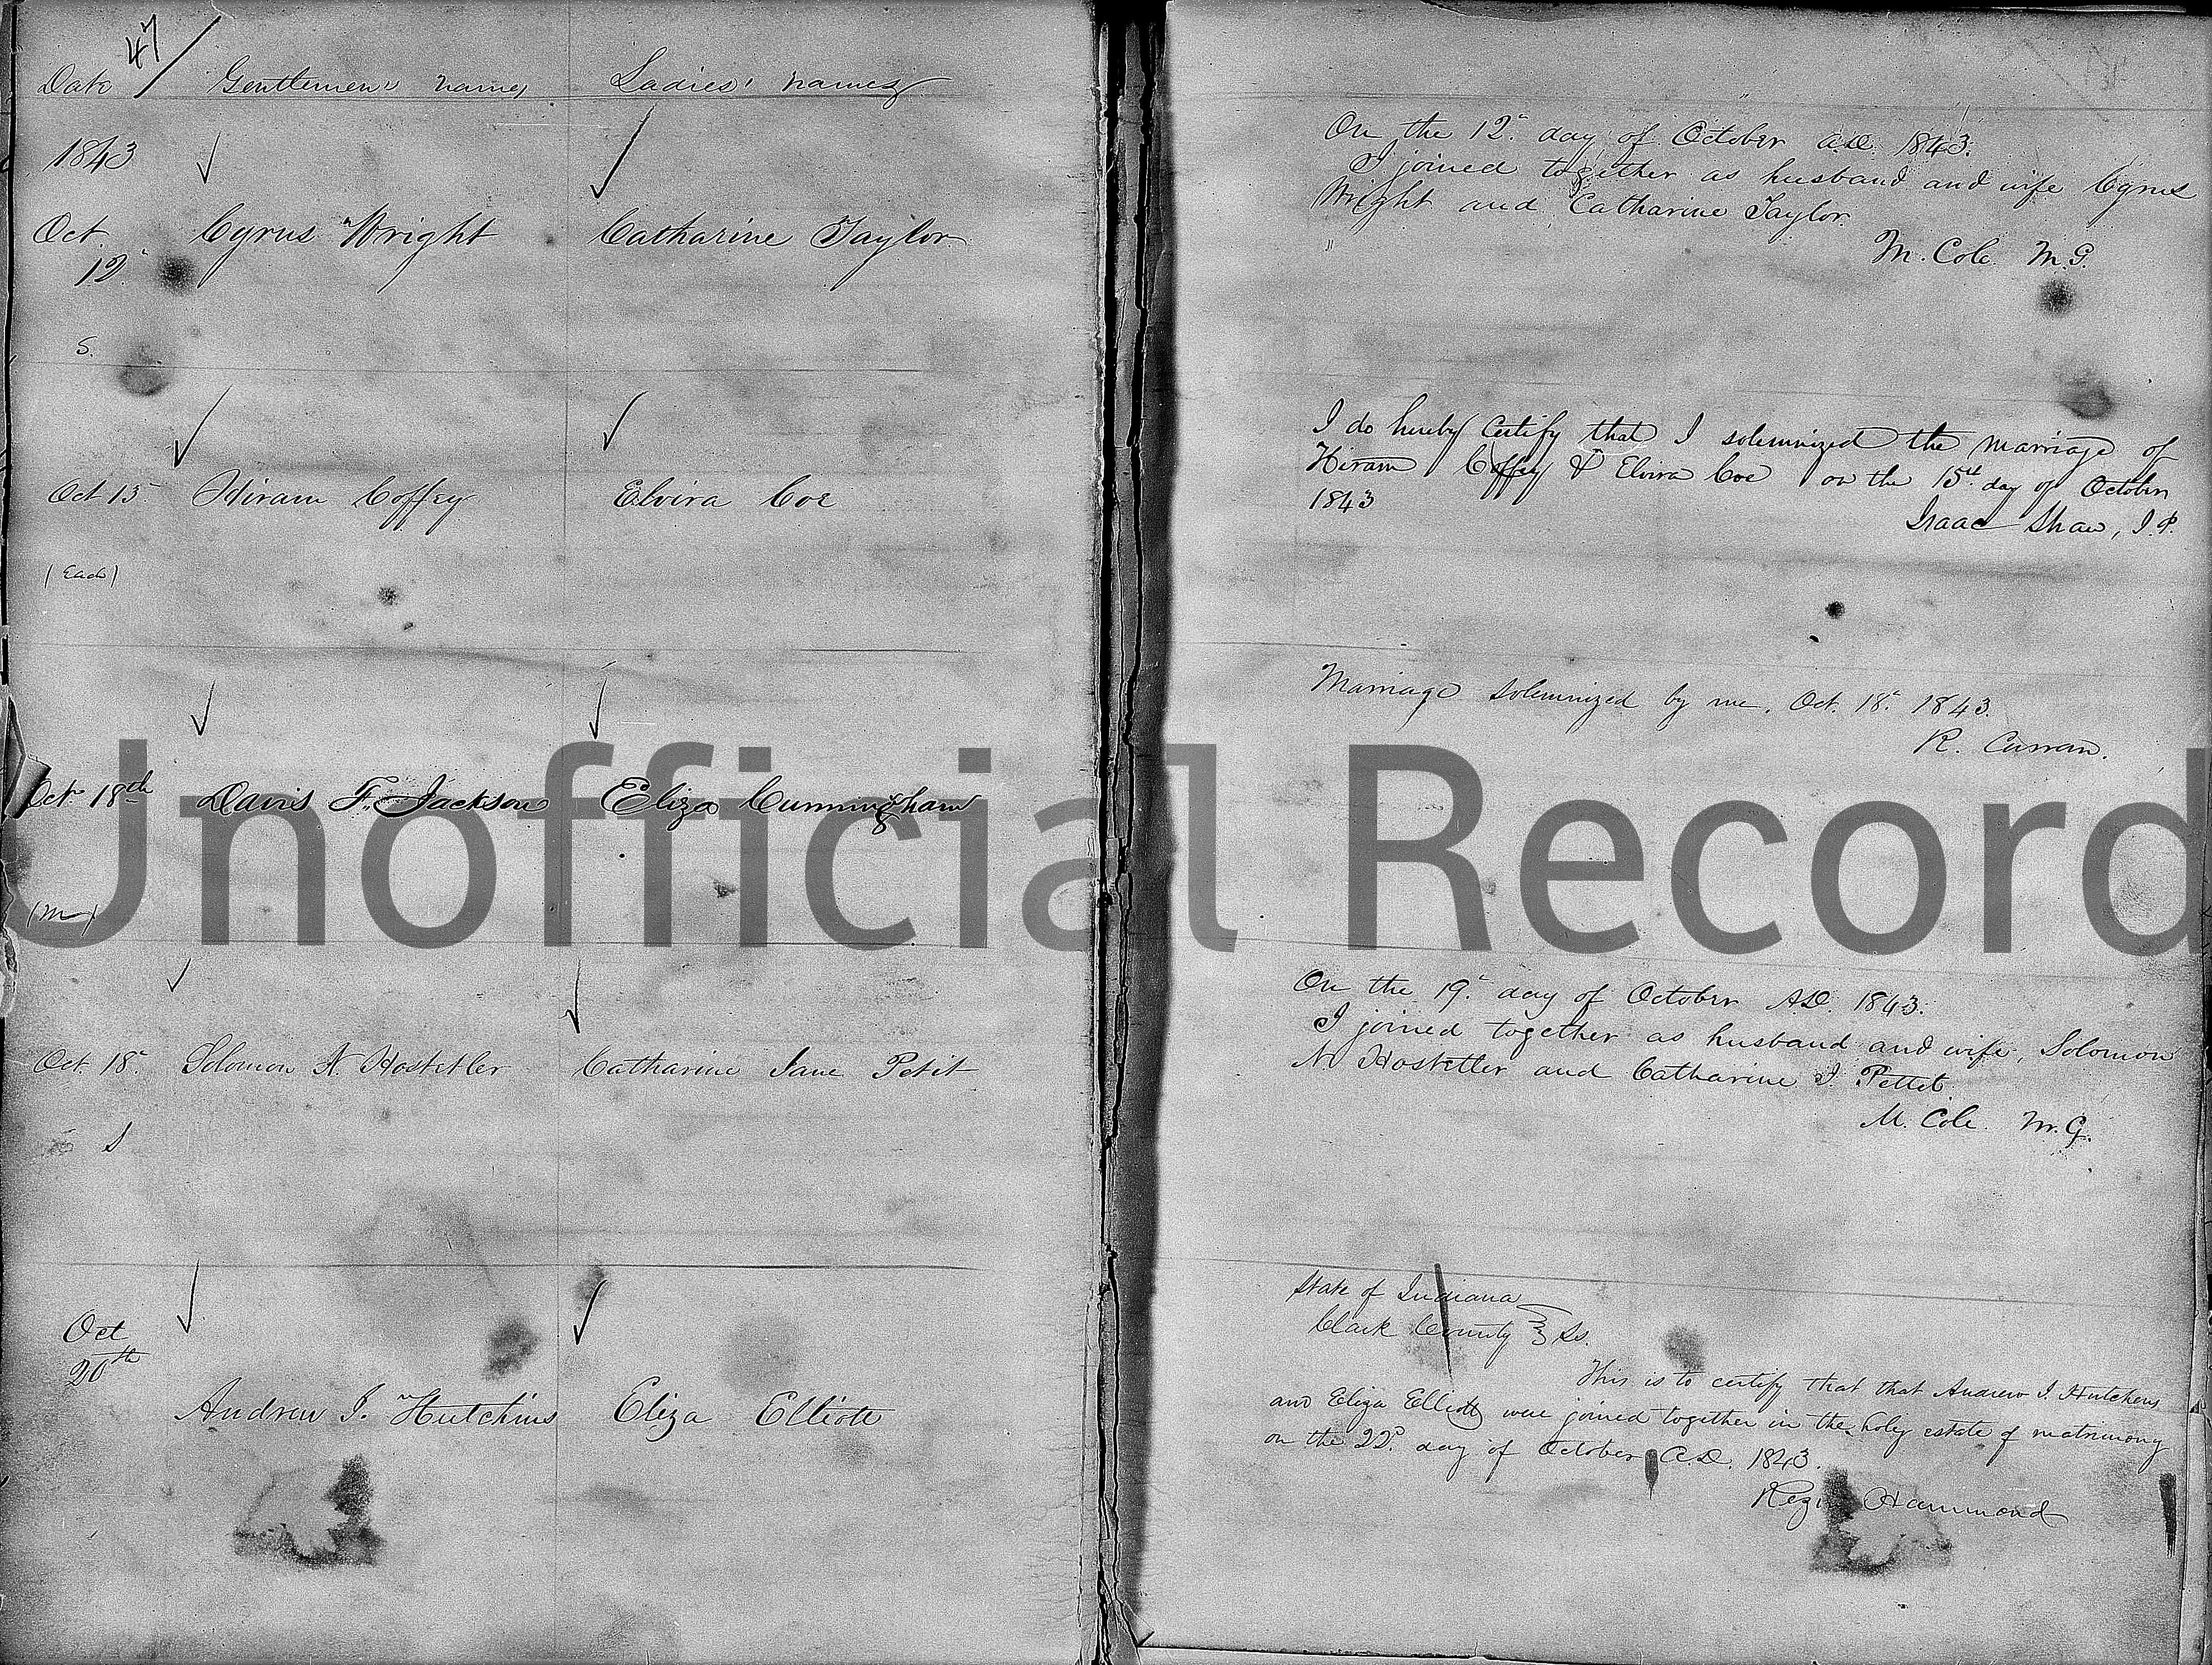 47
Date Gentlemen's names Ladies' names
1843
Oct. Cyrus Wright Catharine Taylor
12.
S.
Oct 15 Hiram Coffey Elvira Coe
(Each)
Oct. 18th Davis F. Jackson Eliza Cunningham
(m)
Oct. 18. Solomon N. Hostetler Catharine Jane Petit
S
Oct
20th
Andrew J. Hutchins Eliza Elliott
On the 12. day of October A.D. 1843.
I joined together as husband and wife Cyrus
Wright and Catharine Taylor.
"
M. Cole M.G.
I do hereby Certify that I solemnized the marriage of
Hiram Coffey & Elvira Coe on the 15th day of October
1843
Isaac Shaw, J.P.
Marriage solemnized by me, Oct. 18. 1843.
R. Curran.
On the 19. day of October A.D. 1843.
I joined together as husband and wife, Solomon
N. Hostetler and Catharine J. Pettet
M. Cole. M.G.
State of Indiana
Clark County Ss.
This is to certify that that Andrew J. Hutchens
and Eliza Elliott were joined together in the holy estate of matrimony
on the 22d. day of October A.D. 1843.
Rezin Hammond
Unofficial Record